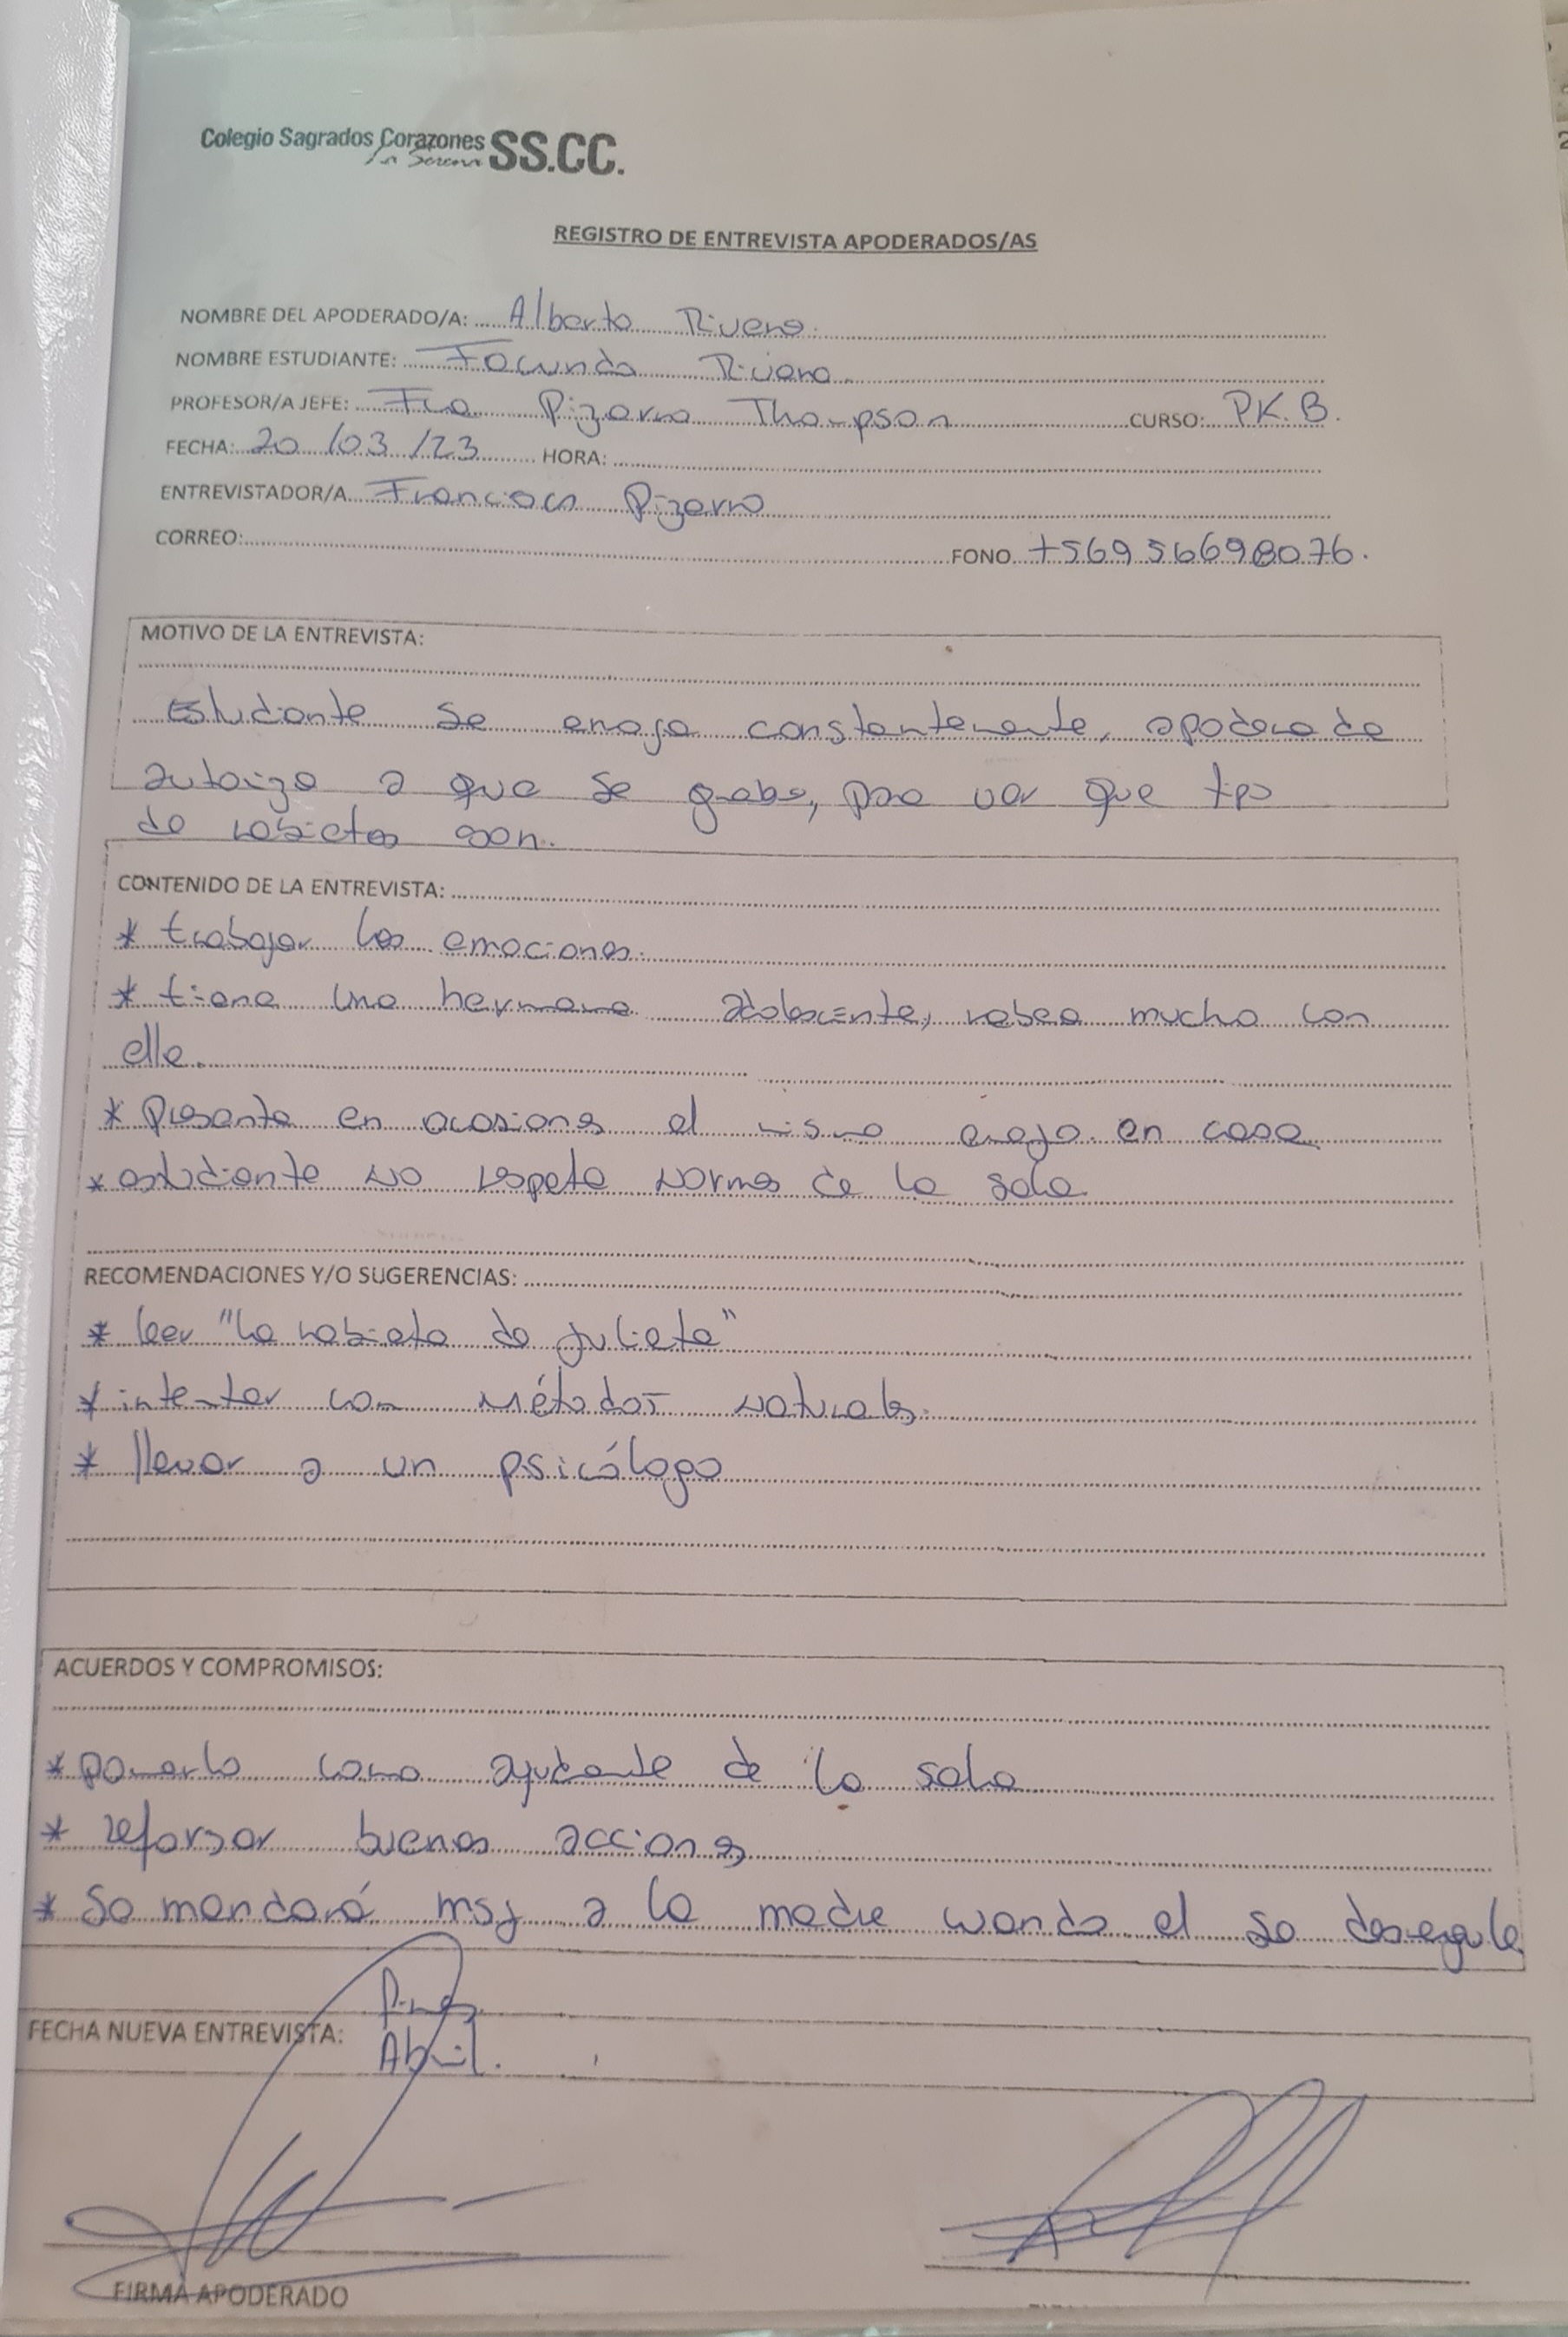 Colegio Sagrados Corazones SS.CC.
La Serena
REGISTRO DE ENTREVISTA APODERADOS/AS
NOMBRE DEL APODERADO/A: Alberto Rivera.
NOMBRE ESTUDIANTE: Facundo Rivera.
PROFESOR/A JEFE: Fca Pizarro Thompson CURSO: PK.B.
FECHA: 20/03/23 HORA:
ENTREVISTADOR/A Francisca Pizarro
CORREO: FONO +56956698076.
MOTIVO DE LA ENTREVISTA:
Estudiante se enoja constantemente, apoderado
autoriza a que se grabe, para ver que tipo
de rabietas son.
CONTENIDO DE LA ENTREVISTA:
* trabajar las emociones.
* tiene una hermana adolescente, rabea mucho con
ella.
* Presenta en ocasiones el mismo enojo en casa
* estudiante no respeta normas de la sala.
RECOMENDACIONES Y/O SUGERENCIAS:
* leer "La rabieta de Julieta"
* intentar con métodos naturales.
* llevar a un psicólogo
ACUERDOS Y COMPROMISOS:
* ponerlo como ayudante de la sala
* reforzar buenas acciones
* Se mandará msj a la madre cuando el se desregule.
FECHA NUEVA ENTREVISTA:
Abril.
FIRMA APODERADO